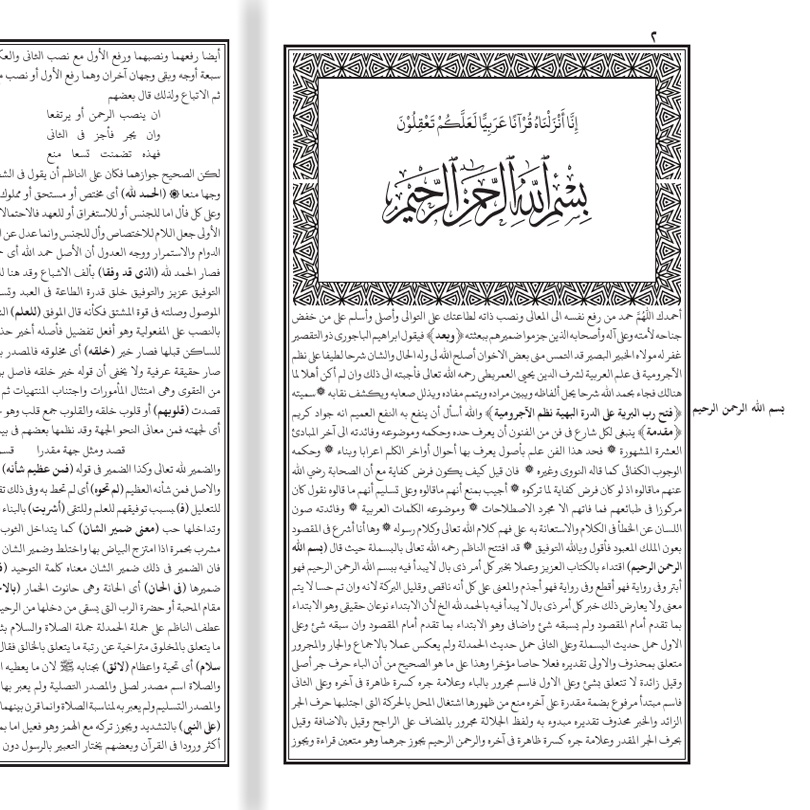 ٢
إِنَّا أَنْزَلْنَاهُ قُرْآنًا عَرَبِيًّا لَعَلَّكُمْ تَعْقِلُونَ
بسم الله الرحمن الرحيم
أحمدك اللهم حمد من رفع نفسه الى المعالى ونصب ذاته لطاعتك على التوالى وأصلى وأسلم على من خفض
جناحه لأمته وعلى آله وأصحابه الذين جزموا ضميرهم ببعثته ﴿وبعد﴾ فيقول ابراهيم الباجورى ذو التقصير
غفر له مولاه الخبير البصير قد التمس منى بعض الاخوان أصلح الله لى وله الحال والشان شرحا لطيفا على نظم
الآجرومية فى علم العربية لشرف الدين يحيى العمريطى رحمه الله تعالى فأجبته الى ذلك وان لم أكن أهلا لما
هنالك فجاء بحمد الله شرحا يحل ألفاظه ويبين مراده ويتمم مفاده ويذلل صعابه ويكشف نقابه ۞ سميته
﴿فتح رب البرية على الدرة البهية نظم الآجرومية﴾ والله أسأل أن ينفع به النفع العميم انه جواد كريم
بسم الله الرحمن الرحيم
﴿مقدمة﴾ ينبغى لكل شارع فى فن من الفنون أن يعرف حده وحكمه وموضوعه وفائدته الى آخر المبادئ
العشرة المشهورة ۞ فحد هذا الفن علم بأصول يعرف بها أحوال أواخر الكلم اعرابا وبناء ۞ وحكمه
الوجوب الكفائى كما قاله النووى وغيره ۞ فان قيل كيف يكون فرض كفاية مع أن الصحابة رضى الله
عنهم ماقالوه اذ لو كان فرض كفاية لما تركوه ۞ أجيب بمنع أنهم ماقالوه وعلى تسليم أنهم ما قالوه نقول كان
مركوزا فى طبائعهم فما فاتهم الا مجرد الاصطلاحات ۞ وموضوعه الكلمات العربية ۞ وفائدته صون
اللسان عن الخطأ فى الكلام والاستعانة به على فهم كلام الله تعالى وكلام رسوله ۞ وها أنا أشرع فى المقصود
بعون الملك المعبود فأقول وبالله التوفيق ۞ قد افتتح الناظم رحمه الله تعالى بالبسملة حيث قال (بسم الله
الرحمن الرحيم) اقتداء بالكتاب العزيز وعملا بخبر كل أمر ذى بال لا يبدأ فيه ببسم الله الرحمن الرحيم فهو
أبتر وفى رواية فهو أقطع وفى رواية فهو أجذم والمعنى على كل أنه ناقص وقليل البركة لانه وان تم حسا لا يتم
معنى ولا يعارض ذلك خبر كل أمر ذى بال لا يبدأ فيه بالحمد لله الخ لأن الابتداء نوعان حقيقى وهو الابتداء
بما تقدم أمام المقصود ولم يسبقه شئ واضافى وهو الابتداء بما تقدم أمام المقصود وان سبقه شئ وعلى
الاول حمل حديث البسملة وعلى الثانى حمل حديث الحمدلة ولم يعكس عملا بالاجماع والجار والمجرور
متعلق بمحذوف والاولى تقديره فعلا خاصا مؤخرا وهذا على ما هو الصحيح من أن الباء حرف جر أصلى
وقيل زائدة لا تتعلق بشئ وعلى الاول فاسم مجرور بالباء وعلامة جره كسرة ظاهرة فى آخره وعلى الثانى
فاسم مبتدأ مرفوع بضمة مقدرة على آخره منع من ظهورها اشتغال المحل بالحركة التى اجتلبها حرف الجر
الزائد والخبر محذوف تقديره مبدوء به ولفظ الجلالة مجرور بالمضاف على الراجح وقيل بالاضافة وقيل
بحرف الجر المقدر وعلامة جره كسرة ظاهرة فى آخره والرحمن الرحيم يجوز جرهما وهو متعين قراءة ويجوز
أيضا رفعهما ونصبهما ورفع الأول مع نصب الثانى
سبعة أوجه وبقى وجهان آخران وهما رفع الأول أو نصب
ثم الاتباع ولذلك قال بعضهم
ان ينصب الرحمن أو يرتفعا
وان يجر فأجز فى الثانى
فهذه تضمنت تسعا منع
لكن الصحيح جوازهما فكان على الناظم أن يقول فى
وجها منعا ۞ (الحمد لله) أى مختص أو مستحق أو مملوك
وعلى كل فأل اما للجنس أو للاستغراق أو للعهد فالاحتمالا
الأولى جعل اللام للاختصاص وأل للجنس وانما عدل عن
الدوام والاستمرار ووجه العدول أن الأصل حمد الله أى
فصار الحمد لله (الذى قد وفقا) بألف الاشباع وقد هنا
التوفيق عزيز والتوفيق خلق قدرة الطاعة فى العبد
الموصول وصلته فى قوة المشتق فكأنه قال الموفق (للعلم)
بالنصب على المفعولية وهو أفعل تفضيل فأصله أخير
للساكن قبلها فصار خير (خلقه) أى مخلوقه فالمصدر
صار حقيقة عرفية ولا يخفى أن قوله خير خلقه فاصل
من التقوى وهى امتثال المأمورات واجتناب المنهيات ثم
قصدت (قلوبهم) أو قلوب خلقه والقلوب جمع قلب وهو
أى لجهته فمن معانى النحو الجهة وقد نظمها بعضهم فى
قصد ومثل جهة مقدرا
والضمير لله تعالى وكذا الضمير فى قوله (فمن عظيم شأنه)
والاصل فمن شأنه العظيم (لم تحوه) أى لم تحط به وفى ذلك
للتعليل (ف) بسبب توفيقهم للعلم وللتقى (أشربت) بالبناء
وتداخلها حب (معنى ضمير الشان) كما يتداخل الثوب
مشرب بحمرة اذا امتزج البياض بها واختلط وضمير الشان
فان الضمير فى ذلك ضمير الشان معناه كلمة التوحيد
ضميرها (فى الحان) أى الحانة وهى حانوت الخمار
مقام المحبة أو حضرة الرب التى يسقى من دخلها من
عطف الناظم على جملة الحمدلة جملة الصلاة والسلام
ما يتعلق بالمخلوق متراخية عن رتبة ما يتعلق بالخالق فقال
سلام) أى تحية واعظام (لائق) بجنابه ﷺ لان ما يعطيه
والصلاة اسم مصدر لصلى والمصدر التصلية ولم يعبر بها
والمصدر التسليم ولم يعبر به لمناسبة الصلاة وانما قرن بينهما
(على النبى) بالتشديد ويجوز تركه مع الهمز وهو فعيل اما
أكثر ورودا فى القرآن وبعضهم يختار التعبير بالرسول دون